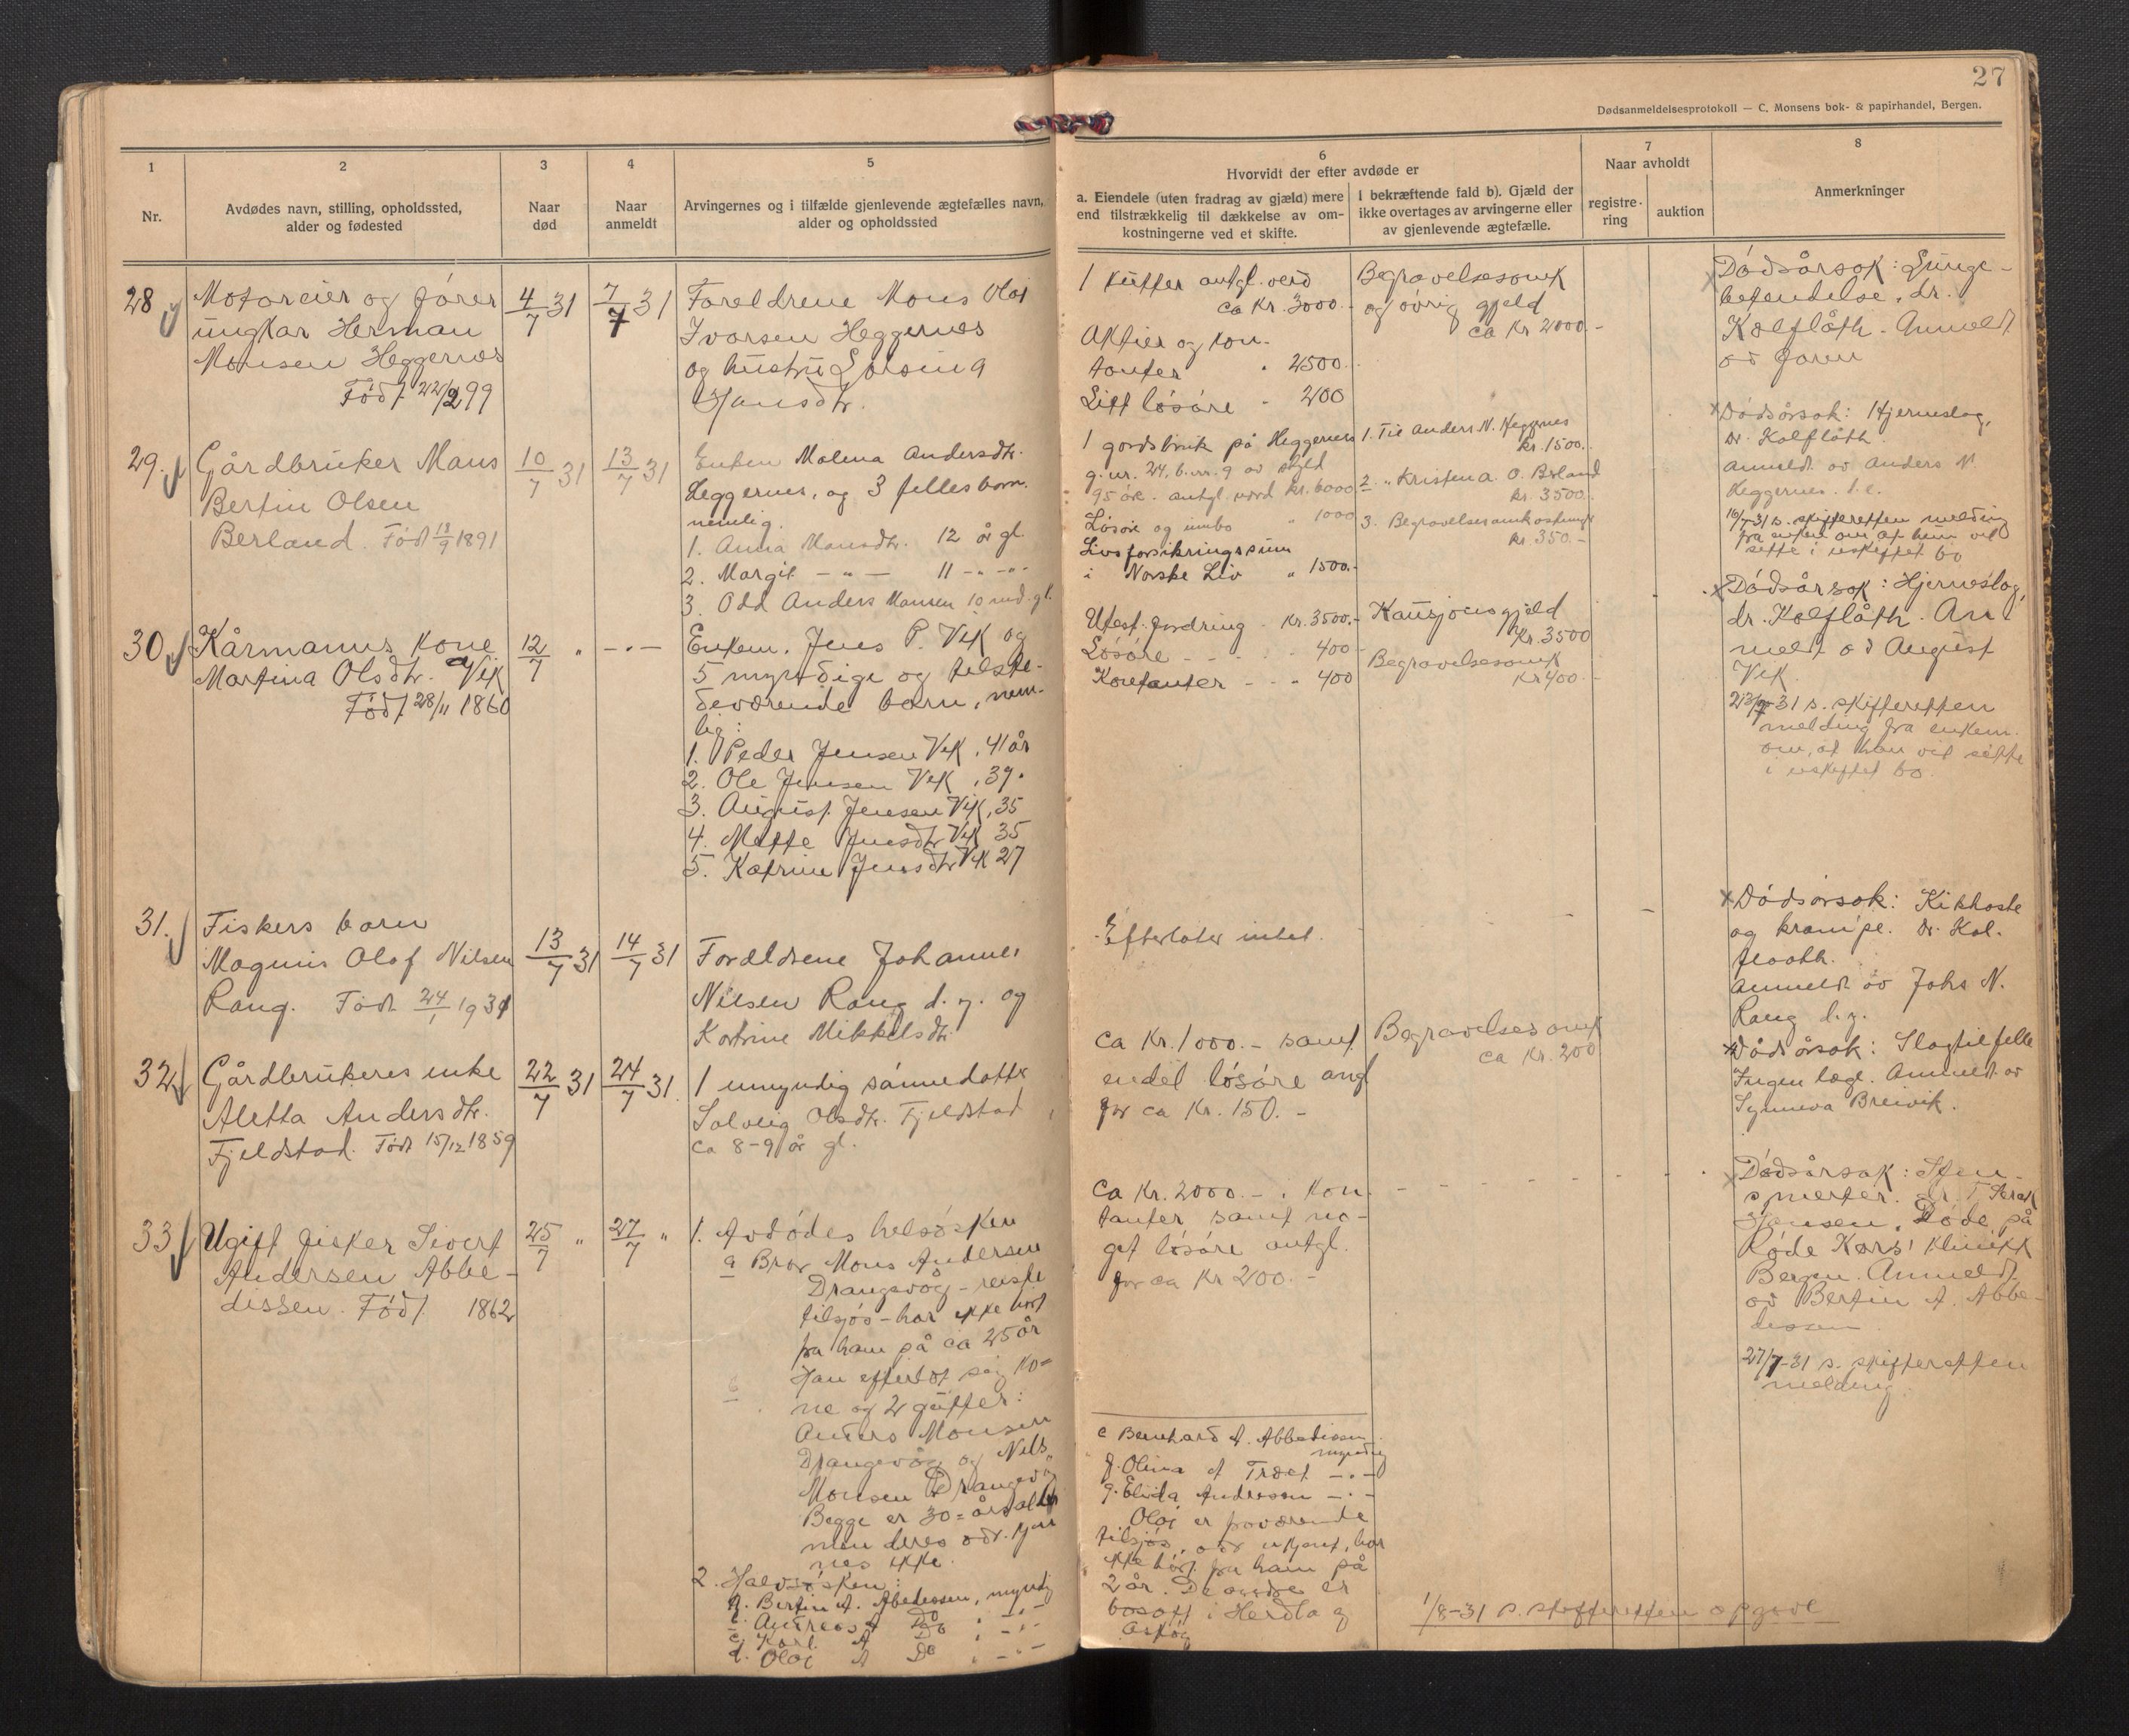 27
Dødsanmeldelsesprotokoll — C. Monsens bok- & papirhandel, Bergen.
1
Nr.
2
Avdødes navn, stilling, opholdssted,
alder og fødested
3
Naar
død
4
Naar
anmeldt
5
Arvingernes og i tilfælde gjenlevende ægtefælles navn,
alder og opholdssted
6
Hvorvidt der efter avdøde er
a. Eiendele (uten fradrag av gjæld) mere
end tilstrækkelig til dækkelse av om-
kostningerne ved et skifte.
I bekræftende fald b). Gjæld der
ikke overtages av arvingerne eller
av gjenlevende ægtefælle.
7
Naar avholdt
registre-
ring
auktion
8
Anmerkninger
28
Motoreier og fører
ungkar Herman
Monsen Heggernes
Født 22/2 99
4/7 31
7/7 31
Foreldrene Mons Olai
Ivarsen Heggernes
og hustru
Hansdtr.
1 kutter antgl. verd
ca kr. 3000.-
Aktier og kon-
tanter " 2500.-
Litt løsøre - 200
Begravelsesomk
og øvrig gjeld
ca kr 2000.-
Dødsårsok: Lunge-
betendelse, dr.
Kolflåth. Anmeldt
av faren
29.
Gårdbruker Mons
Bertin Olsen
Berland. Født 13/9 1891
10/7 31
13/7 31
Enken Malena Andersdtr.
Heggernes, og 3 felles born.
nemlig.
1. Anna Monsdtr. 12 år gl.
2. Margit - " - 11 - " -
3. Odd Anders Monsen 10 mnd. gl.
1 gårdsbruk på Heggernes
g. nr. 24, b. nr. 9 av skyld
95 øre. antgl. verd kr. 6000
Løsøre og innbo " 1000
Livsforsikringssum
i Norske Liv " 1500.-
1. Til Anders N. Heggernes
kr. 1500.-
2. " Kristen a. O. Berland
kr. 3500.-
3. Begravelsesomkostninger
kr. 350.-
Dødsårsok: Hjerneslag,
dr. Kolflåth.
Anmeldt av Anders N.
Heggernes. d. e.
16/7-31 s. skifteretten melding
fra enken om at hun vil
sitte i uskiftet bo
30
Kårmanns kone
Martina Olsdtr. Vik
Født 28/11 1860
12/7 "
- " -
Enkem. Jens P. Vik og
5 myndige og tilste-
deværende barn, nem-
lig:
1. Peder Jensen Vik, 41 år
2. Ole Jensen Vik, 39.
3. August Jensen Vik, 35
4. Mette Jensdtr Vik 35
5. Katrine Jensdtr Vik 27
Utest. fordring - kr. 3500.-
Løsøre - - - 400-
Kontanter - - " 400
Kausjonsgjeld
kr. 3500
Begravelsesomk
kr 400.-
Dødsårsok: Hjerneslag,
dr. Kolflåth. An-
meldt av August
Vik.
melding fra enkem.
om, at han vil sitte
i uskiftet bo.
31.
Fiskers barn
Magnus Olaf Nilsen
Rang. Født 24/1 1931
13/7 31
14/7 31
Foreldrene Johannes
Nilsen Rang d. y. og
Katrine Mikkelsdtr
Efterlater intet.
Dødsårsok: Kikhoste
og krampe. Dr. Kol-
flaath.
Anmeldt av Johs N.
Rang d. y.
32
Gårdbrukeres enke
Aletta Andersdtr.
Fjeldstad. Født 15/12 1859
22/7 31
24/7 31.
1 umyndig sønnedatter
Solveig Olsdtr. Fjeldstad
ca 8-9 år gl.
Ca kr. 1000.- samt
endel løsøre angl
for ca kr. 150.-
Begravelsesomk
ca kr. 200
Dødsårsok: Slagtilfelle
Ingen læge. Anmeldt av
Synneva Breivik.
33
Ugift fisker Sivert
Andersen Abbe-
dissen. Født 1862
25/7 "
27/7 "
1. Avdødes helsøsken
a Bror Mons Andersen
Drangsvåg - reiste
tilsjøs - har ikke hørt
fra ham på ca 25 år
Han efterlot sig ko-
ne og 2 gutter:
Anders Monsen
Drangsvåg og Nils
Monsen Drangsvåg
Begge er 30-årsalder
men deres adr. kjen
nes ikke.
2. Halvsøsken:
a. Bertin A. Abbedissen, myndig
b. Andreas A Do " - " -
c. Karl A Do " - " -
d. Olai A Do " - " -
Ca kr. 2000.- i kon-
tanter samt no-
get løsøre antgl.
for ca kr 200.-
e Bernhard A. Abbedissen
myndig
f. Olina A Træet - " -
g. Elida Anderssen - " -
Olai er fraværende
tilsjøs, adr ukjent, har
ikke hørt fra ham på
2 år. De andre er
bosatt i Herdla og
Askøy
Dødsårsak: Sten
smerter.
Hansen. Døde på
Røde Kors' klinikk
Bergen. Anmeldt
av Bertin A. Abbe-
dissen
27/7-31 s. skifteretten
melding.
1/8-31 s. skifteretten opgave